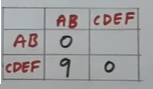 AB CDEF
AB 0
CDEF 9 0